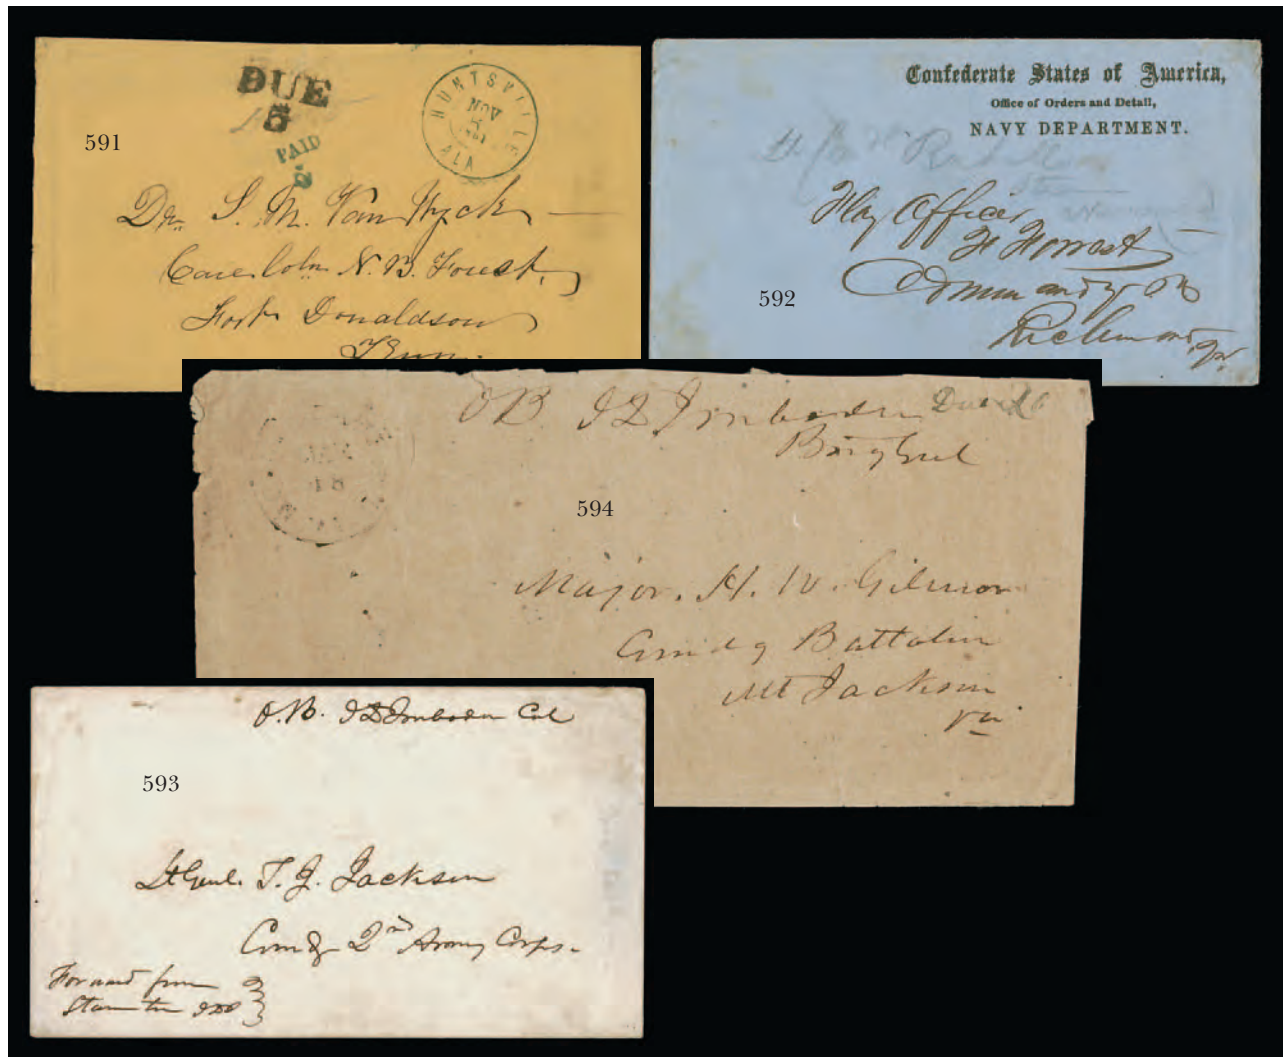 591
DUE
5
PAID
5
HUNTSVILLE
NOV
ALA
Dr. S. M. Van Wyck
Care Coln N. B. Forrest
Fort Donaldson
Tenn.
592
Confederate States of America,
Office of Orders and Detail,
NAVY DEPARTMENT.
Flag Officer
F Forrest
Richmond, Va.
594
O B J D Imboden Due 20
Brig Genl
18
Major. H. W. Gilmor
Comdg Battalion
Mt Jackson
Va
593
O. B. J D Imboden Col
Lt Genl. T. J. Jackson
Comdg 2nd Army Corps.
Forward from
Staunton